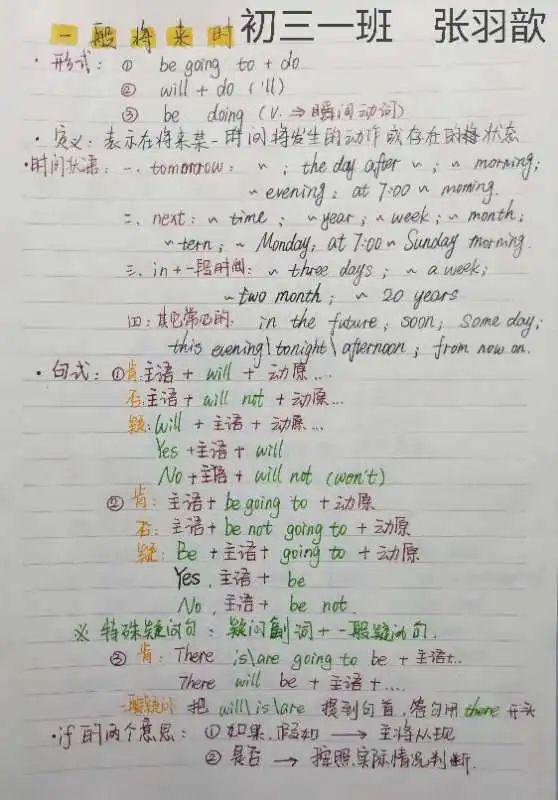 一般将来时 初三一班 张羽歆
· 形式: ① be going to + do
② will + do ('ll)
③ be doing (v. ⇒ 瞬间动词)
· 定义: 表示在将来某一时间将发生的动作或存在的将状态
· 时间状语: 一. tomorrow: ~ ; the day after ~ ; ~ morning;
~ evening; at 7:00 ~ morning.
二. next: ~ time ; ~ year ; ~ week ; ~ month ;
~ tern ; ~ Monday; at 7:00 ~ Sunday morning.
三. in + 一段时间: ~ three days ; ~ a week;
~ two month ; ~ 20 years
四: 其它常见的: in the future; soon; some day;
this evening\tonight\afternoon ; from now on.
· 句式: ① 肯: 主语 + will + 动原...
否: 主语 + will not + 动原...
疑: Will + 主语 + 动原...
Yes + 主语 + will
No + 主语 + will not (won't)
② 肯: 主语 + be going to + 动原
否: 主语 + be not going to + 动原
疑: Be + 主语 + going to + 动原
Yes, 主语 + be
No, 主语 + be not.
※ 特殊疑问句: 疑问副词 + 一般疑问句.
③ 肯: There is\are going to be + 主语+..
There will be + 主语 + ....
一般疑问 把 will\is\are 提到句首, 答句用 there 开头
· if 的两个意思: ① 如果, 假如 → 主将从现
② 是否 → 按照实际情况判断.